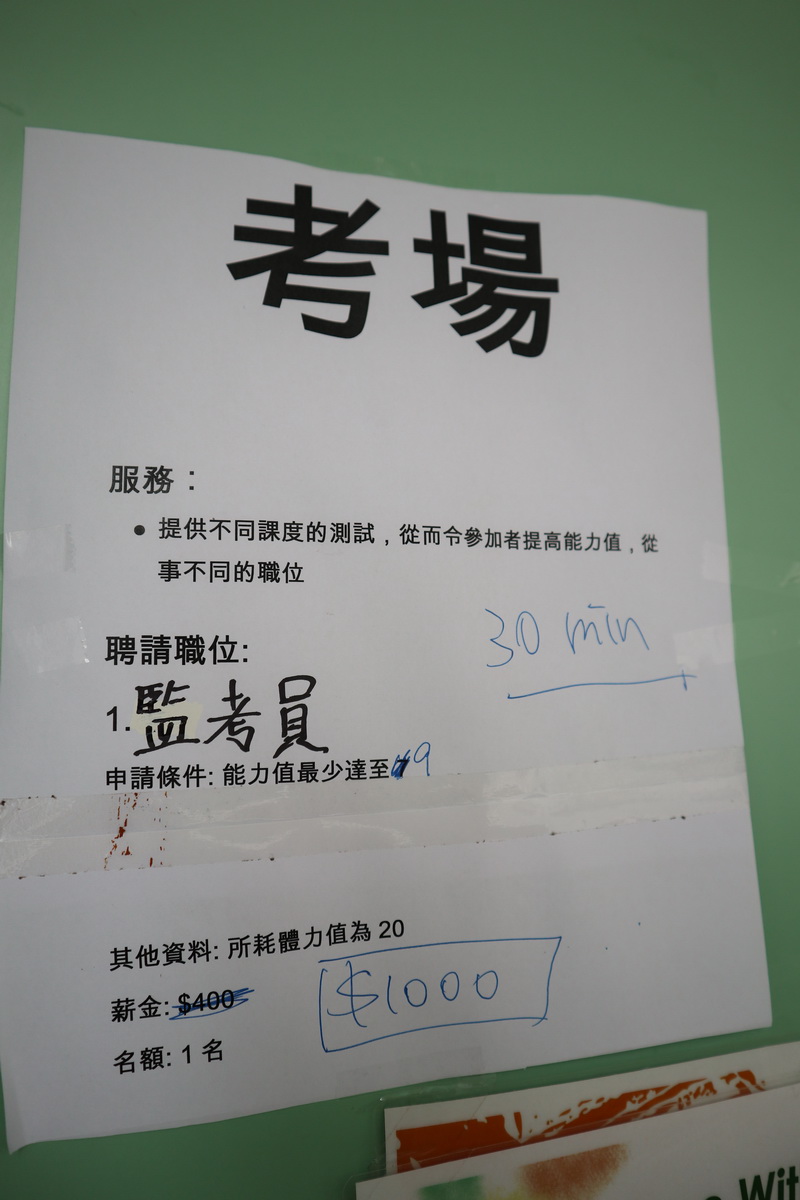 考場
服務：
• 提供不同課度的測試，從而令參加者提高能力值，從
事不同的職位
30 min
聘請職位:
1.監考員
申請條件: 能力值最少達至 9
其他資料: 所耗體力值為 20
薪金: $400 $1000
名額: 1 名
Wit